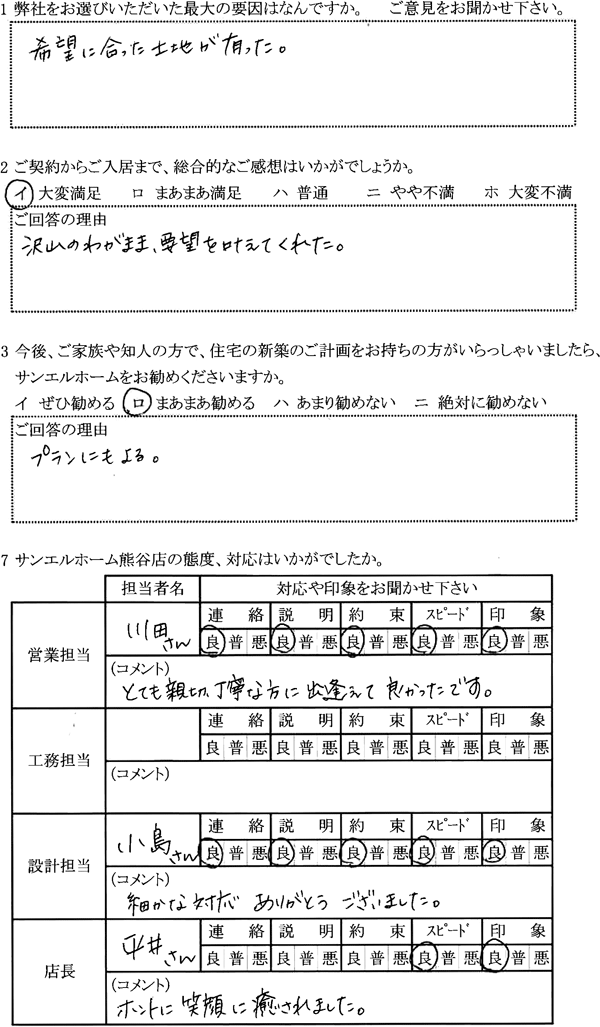 1 弊社をお選びいただいた最大の要因はなんですか。 ご意見をお聞かせ下さい。
希望に合った土地が有った。
2 ご契約からご入居まで、総合的なご感想はいかがでしょうか。
イ 大変満足 ロ まあまあ満足 ハ 普通 ニ やや不満 ホ 大変不満
ご回答の理由
沢山のわがまま、要望を叶えてくれた。
3 今後、ご家族や知人の方で、住宅の新築のご計画をお持ちの方がいらっしゃいましたら、
サンエルホームをお勧めくださいますか。
イ ぜひ勧める ロ まあまあ勧める ハ あまり勧めない ニ 絶対に勧めない
ご回答の理由
プランにもよる。
7 サンエルホーム熊谷店の態度、対応はいかがでしたか。
担当者名 対応や印象をお聞かせ下さい
営業担当 川田さん 連絡 説明 約束 スピード 印象
良 普 悪 良 普 悪 良 普 悪 良 普 悪 良 普 悪
(コメント)
とても親切、丁寧な方に出逢えて良かったです。
工務担当 連絡 説明 約束 スピード 印象
良 普 悪 良 普 悪 良 普 悪 良 普 悪 良 普 悪
(コメント)
設計担当 小島さん 連絡 説明 約束 スピード 印象
良 普 悪 良 普 悪 良 普 悪 良 普 悪 良 普 悪
(コメント)
細かな対応 ありがとう ございました。
店長 平井さん 連絡 説明 約束 スピード 印象
良 普 悪 良 普 悪 良 普 悪 良 普 悪 良 普 悪
(コメント)
ホントに笑顔に癒されました。